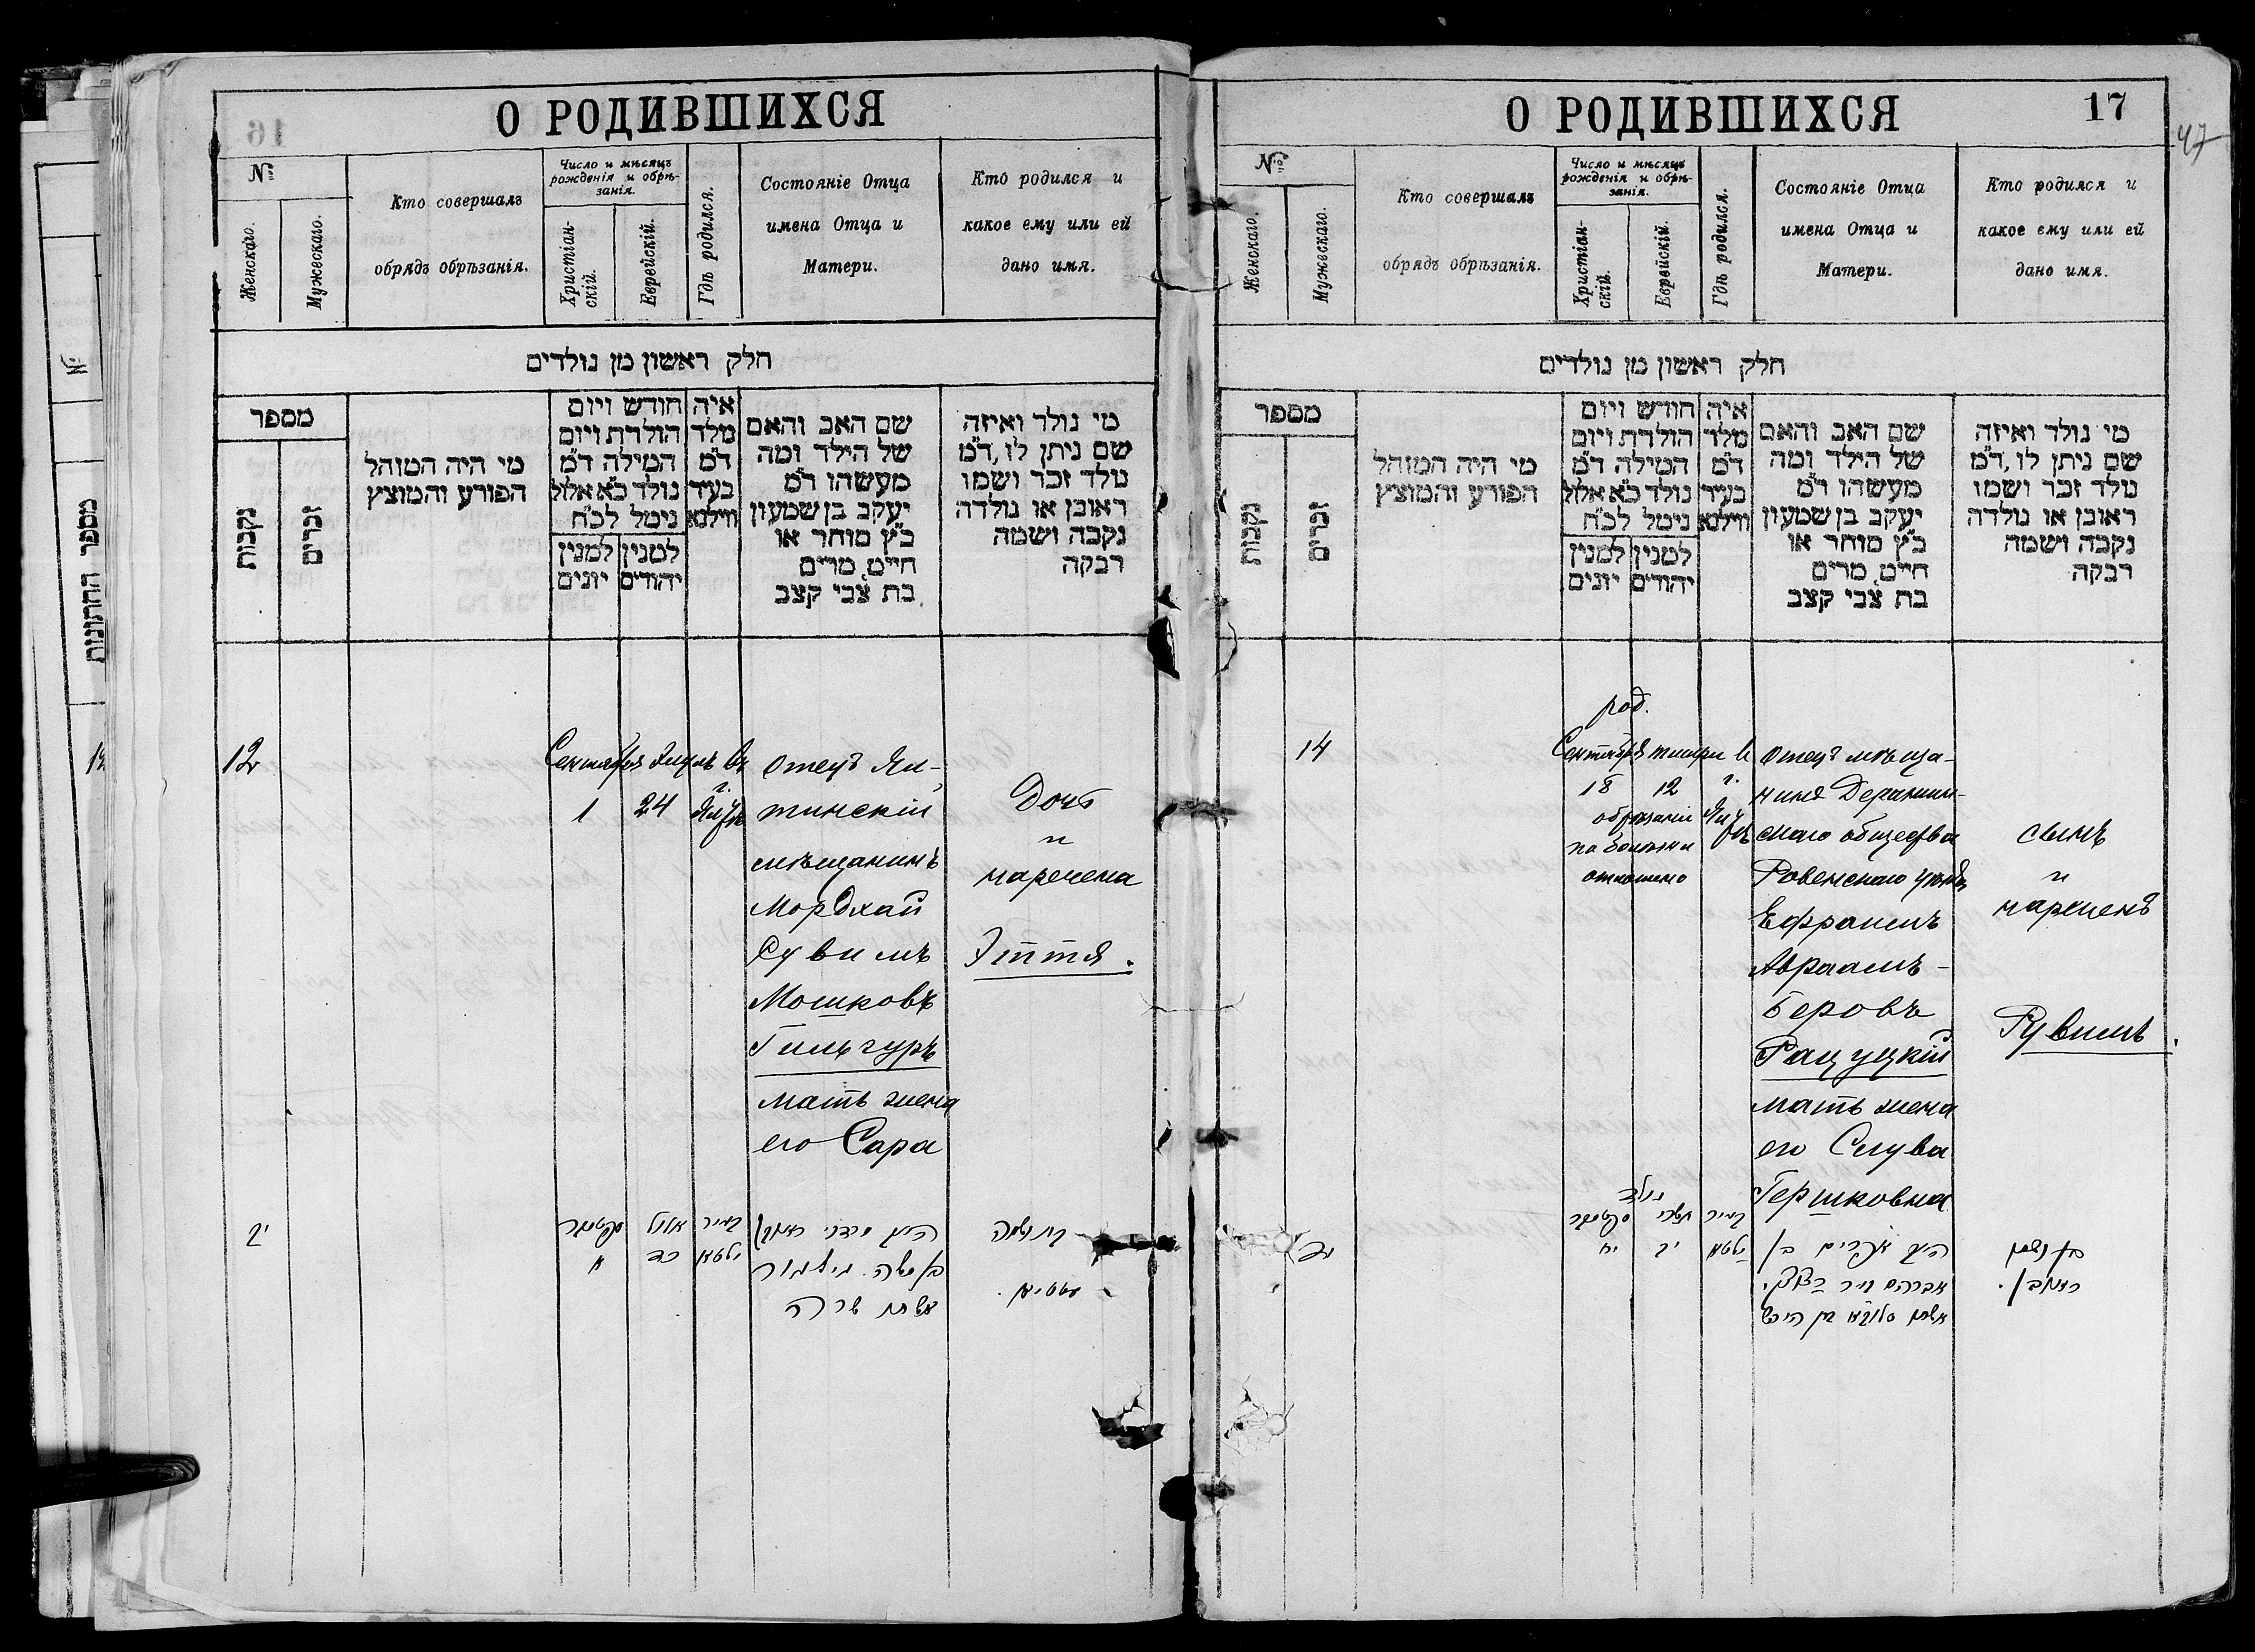 О РОДИВШИХСЯ
16
№
Женскаго.
Мужескаго.
Кто совершалъ
обрядъ обрѣзанія.
Число и мѣсяцъ
рожденія и обрѣ-
занія.
Христіан-
скій.
Еврейскій.
Гдѣ родился.
Состояніе Отца
имена Отца и
Матери.
Кто родился и
какое ему или ей
дано имя.
חלק ראשון מן נולדים
מספר
נקבות
זכרים
מי היה המוהל
הפורע והמוצץ
חודש ויום
הולדת ויום
המילה ד"מ
נולד כ"א אלול
נימל לכ"ח
למנין למנין
יהודים יונים
איה
מלד
ד"מ
בעיר
ווילנא
שם האב והאם
של הילד ומה
מעשהו ד"מ
יעקב בן שמעון
כ"ץ סוחר או
חייט, מרים
בת צבי קצב
מי נולד ואיזה
שם ניתן לו, ד"מ
נולד זכר ושמו
ראובן או נולדה
נקבה ושמה
רבקה
12
Сентября Элулъ Въ
1 24
г.
отецъ Ял-
тинскій
мѣщанинъ
Мордхай
Рувимъ
Мошковъ
Гильгуръ
мать жена
его Сара
Дочь
и
наречена
Этття.
יב
סעפטעמבר אלול בעיר
א כד יאלטא
אשתו שרה
בת ושמה
עטיא.
О РОДИВШИХСЯ
17
47
№
Женскаго.
Мужескаго.
Кто совершалъ
обрядъ обрѣзанія.
Число и мѣсяцъ
рожденія и обрѣ-
занія.
Христіан-
скій.
Еврейскій.
Гдѣ родился.
Состояніе Отца
имена Отца и
Матери.
Кто родился и
какое ему или ей
дано имя.
חלק ראשון מן נולדים
מספר
נקבות
זכרים
מי היה המוהל
הפורע והמוצץ
חודש ויום
הולדת ויום
המילה ד"מ
נולד כ"א אלול
נימל לכ"ח
למנין למנין
יהודים יונים
איה
מלד
ד"מ
בעיר
ווילנא
שם האב והאם
של הילד ומה
מעשהו ד"מ
יעקב בן שמעון
כ"ץ סוחר או
חייט, מרים
בת צבי קצב
מי נולד ואיזה
שם ניתן לו, ד"מ
נולד זכר ושמו
ראובן או נולדה
נקבה ושמה
רבקה
14
род.
Сентября тишри
18 12
обрѣзаніе
по болѣзни
отложено
г.
отецъ мѣща-
нинъ
скаго общества
Ровенскаго уѣзда
Ефраимъ
Авраамъ-
Беровъ
Рацуцкій
мать жена
его Слува
Гершковна
сынъ
и
нареченъ
Рувимъ.
יד
נולד
תשרי בעיר
יח יב יאלטא
אפרים בן
אברהם
בן ושמו
ראובן.